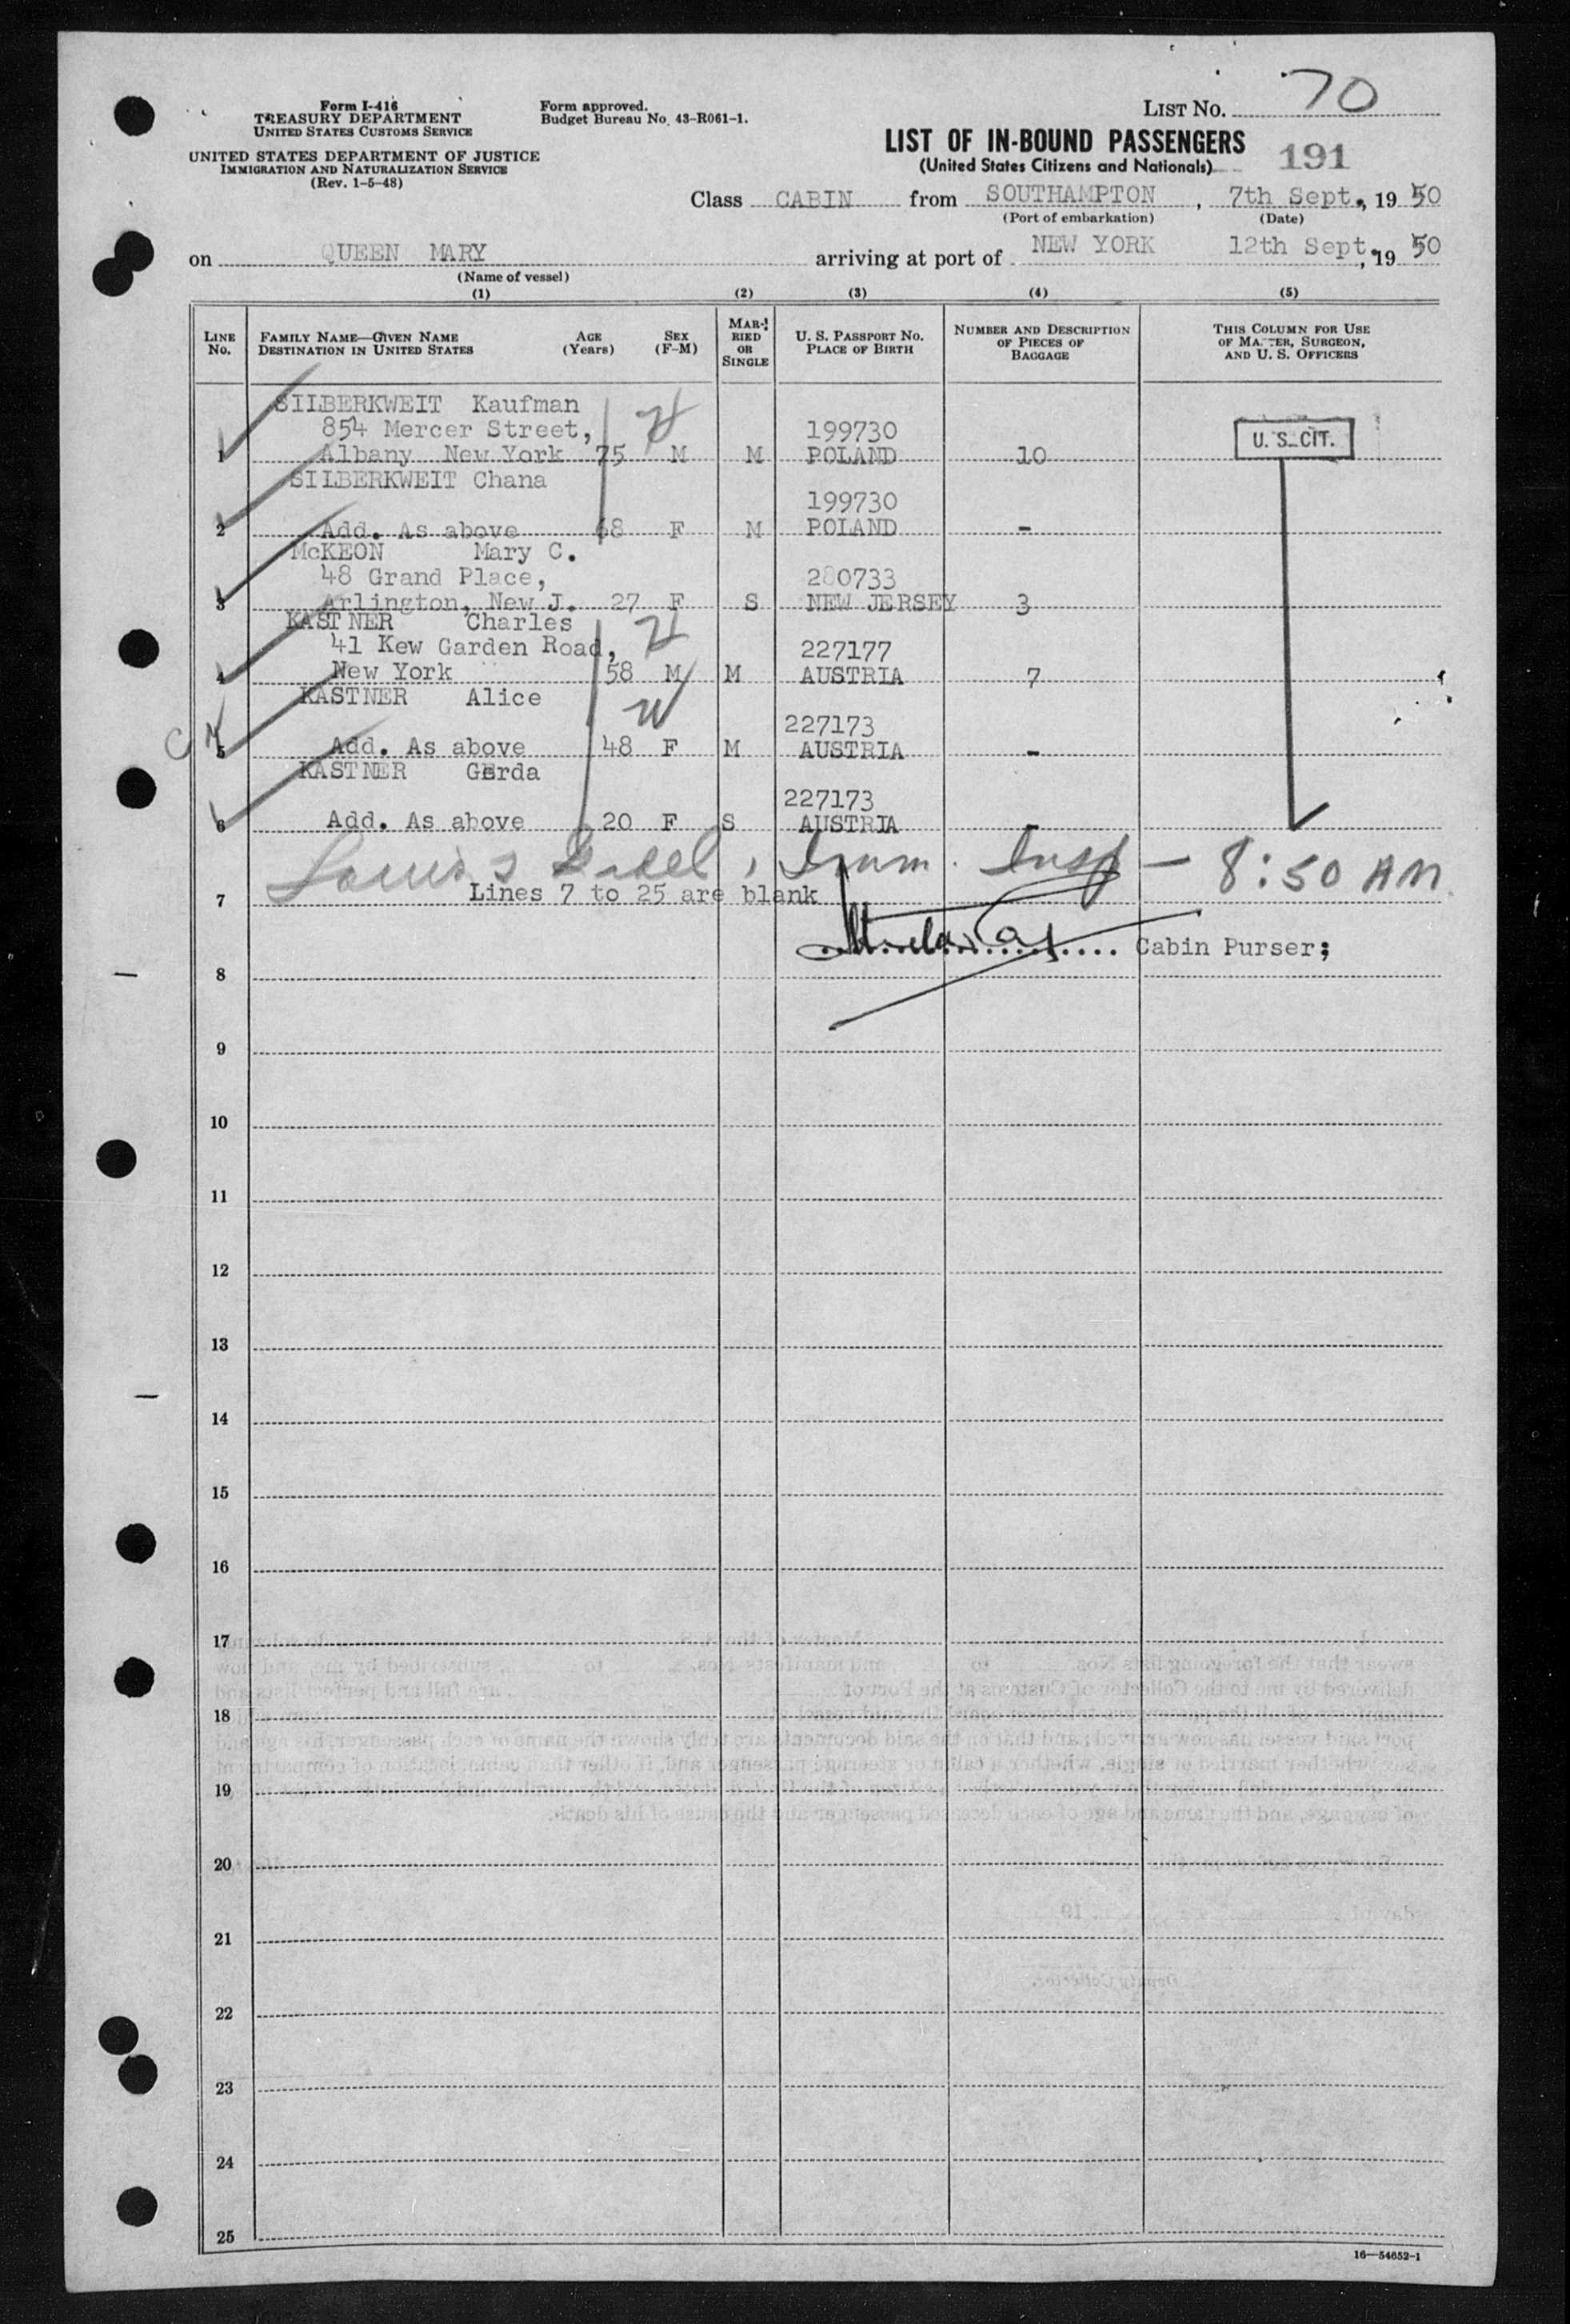 Form I-416
TREASURY DEPARTMENT
UNITED STATES CUSTOMS SERVICE
UNITED STATES DEPARTMENT OF JUSTICE
IMMIGRATION AND NATURALIZATION SERVICE
(Rev. 1-5-48)
Form approved.
Budget Bureau No. 43-R061-1.
LIST NO. 70
LIST OF IN-BOUND PASSENGERS
(United States Citizens and Nationals)
191
Class CABIN from SOUTHAMPTON, 7th Sept., 19 50
(Port of embarkation) (Date)
on QUEEN MARY arriving at port of NEW YORK 12th Sept., 19 50
(Name of vessel)
(1) (2) (3) (4) (5)
LINE NO.
FAMILY NAME—GIVEN NAME
DESTINATION IN UNITED STATES
AGE (Years)
SEX (F-M)
MARRIED OR SINGLE
U. S. PASSPORT NO.
PLACE OF BIRTH
NUMBER AND DESCRIPTION OF PIECES OF BAGGAGE
THIS COLUMN FOR USE OF MASTER, SURGEON, AND U. S. OFFICERS
SILBERKWEIT Kaufman
854 Mercer Street, 199730
1 Albany New York 75 M M POLAND 10 U. S. CIT.
SILBERKWEIT Chana
199730
2 Add. As above 68 F M POLAND -
McKEON Mary C.
48 Grand Place, 280733
3 Arlington, New J. 27 F S NEW JERSEY 3
KASTNER Charles
41 Kew Garden Road, 227177
4 New York 58 M M AUSTRIA 7
KASTNER Alice
227173
5 Add. As above 48 F M AUSTRIA -
KASTNER Gerda
227173
6 Add. As above 20 F S AUSTRIA -
Louis Imm. Insp - 8:50 AM
7 Lines 7 to 25 are blank
Cabin Purser;
8
9
10
11
12
13
14
15
16
17
18
19
20
21
22
23
24
25
16—54652-1